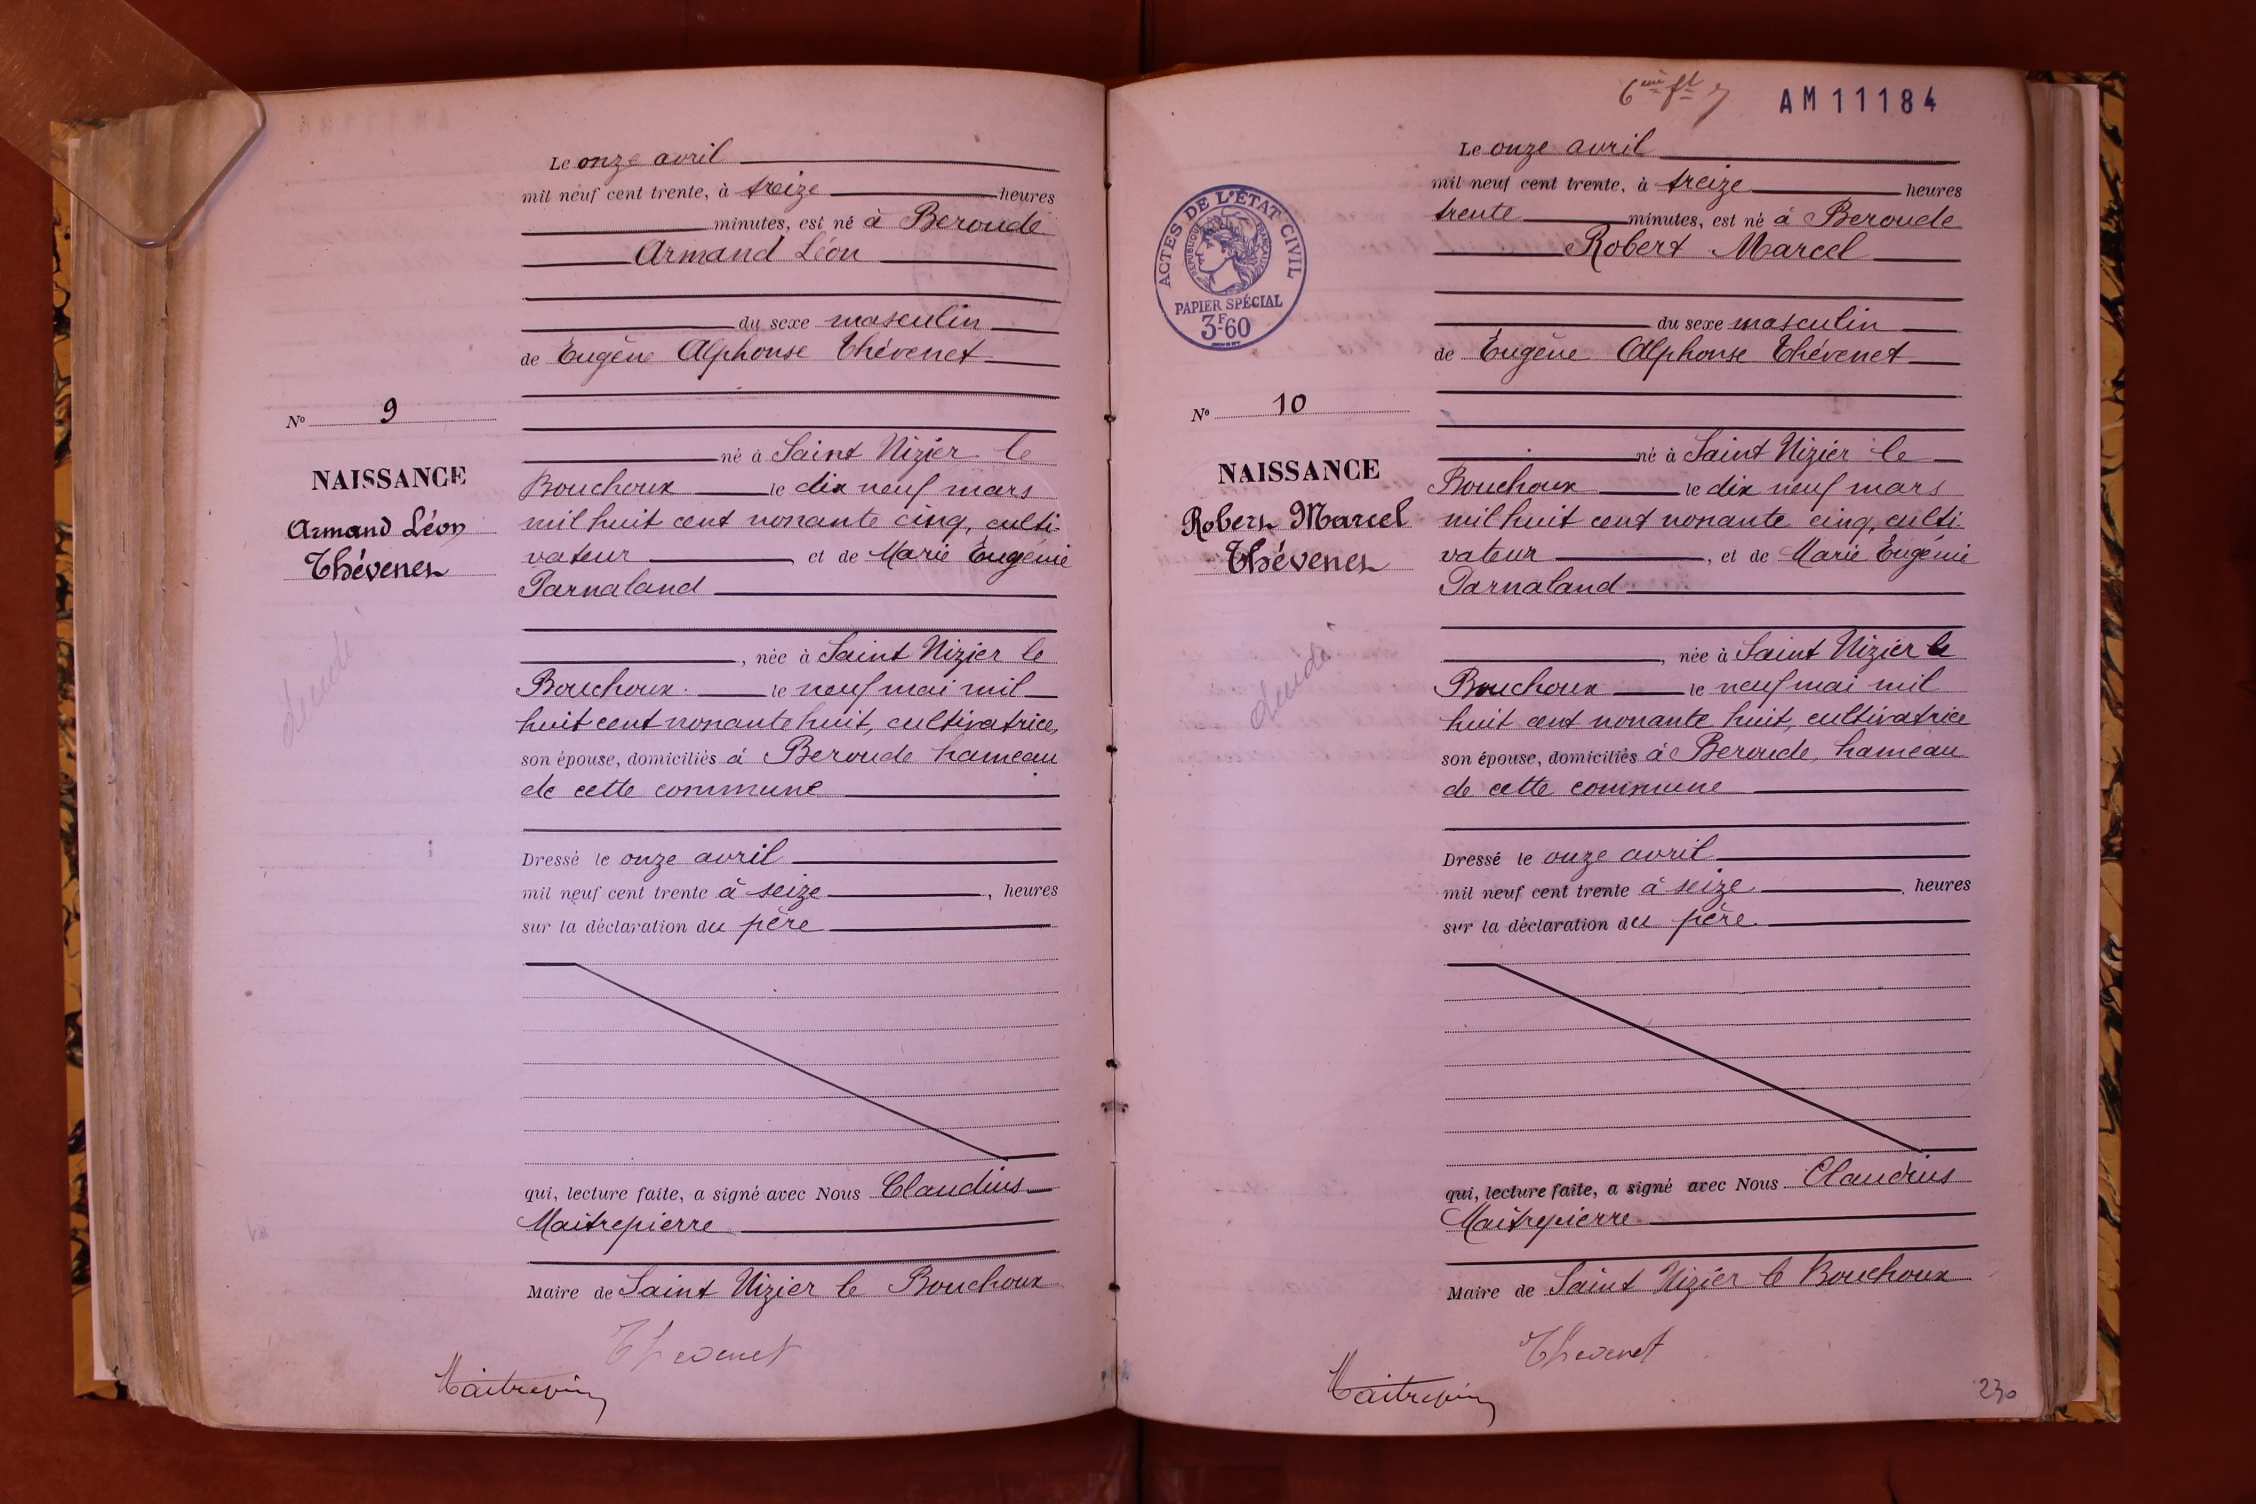 Le onze avril
mil neuf cent trente, à treize heures
minutes, est né à Beroude
Armand Léon
du sexe masculin
de Eugène Alphonse Thévenet
N° 9
NAISSANCE
Armand Léon
Thévenet
né à Saint Nizier le
Bouchoux le dix neuf mars
mil huit cent nonante cinq, culti-
vateur et de Marie Eugénie
Parnaland
, née à Saint Nizier le
Bouchoux le neuf mai mil
huit cent nonante huit, cultivatrice,
son épouse, domiciliés à Beroude hameau
de cette commune
Dressé le onze avril
mil neuf cent trente à seize, heures
sur la déclaration du père
qui, lecture faite, a signé avec Nous Claudius
Maitrepierre
Maire de Saint Nizier le Bouchoux
Thevenet
Maitrepierre
6ème ft 7
AM11184
ACTES DE L'ÉTAT CIVIL
RÉPUBLIQUE FRANÇAISE
PAPIER SPÉCIAL
3F60
Le onze avril
mil neuf cent trente, à treize heures
trente minutes, est né à Beroude
Robert Marcel
du sexe masculin
de Eugène Alphonse Thévenet
N° 10
NAISSANCE
Robert Marcel
Thévenet
né à Saint Nizier le
Bouchoux le dix neuf mars
mil huit cent nonante cinq, culti
vateur, et de Marie Eugénie
Parnaland
, née à Saint Nizier le
Bouchoux le neuf mai mil
huit cent nonante huit, cultivatrice
son épouse, domiciliés à Beroude, hameau
de cette commune
Dressé le onze avril
mil neuf cent trente à seize heures
sur la déclaration du père
qui, lecture faite, a signé avec Nous Claudius
Maitrepierre
Maire de Saint Nizier le Bouchoux
Thevenet
Maitrepierre
230